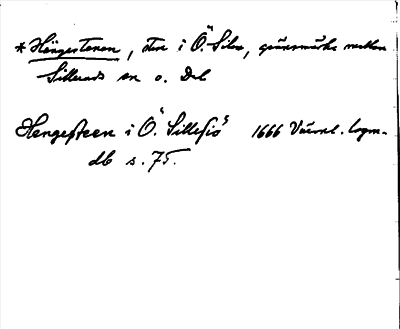 * Hängestenen, sten i Ö. Silen, gränsmärke mellan
Silleruds sn o. Dsl
Hengesteen i Ö. Sillesiö 1666 Värml. lagm.
db s. 75.